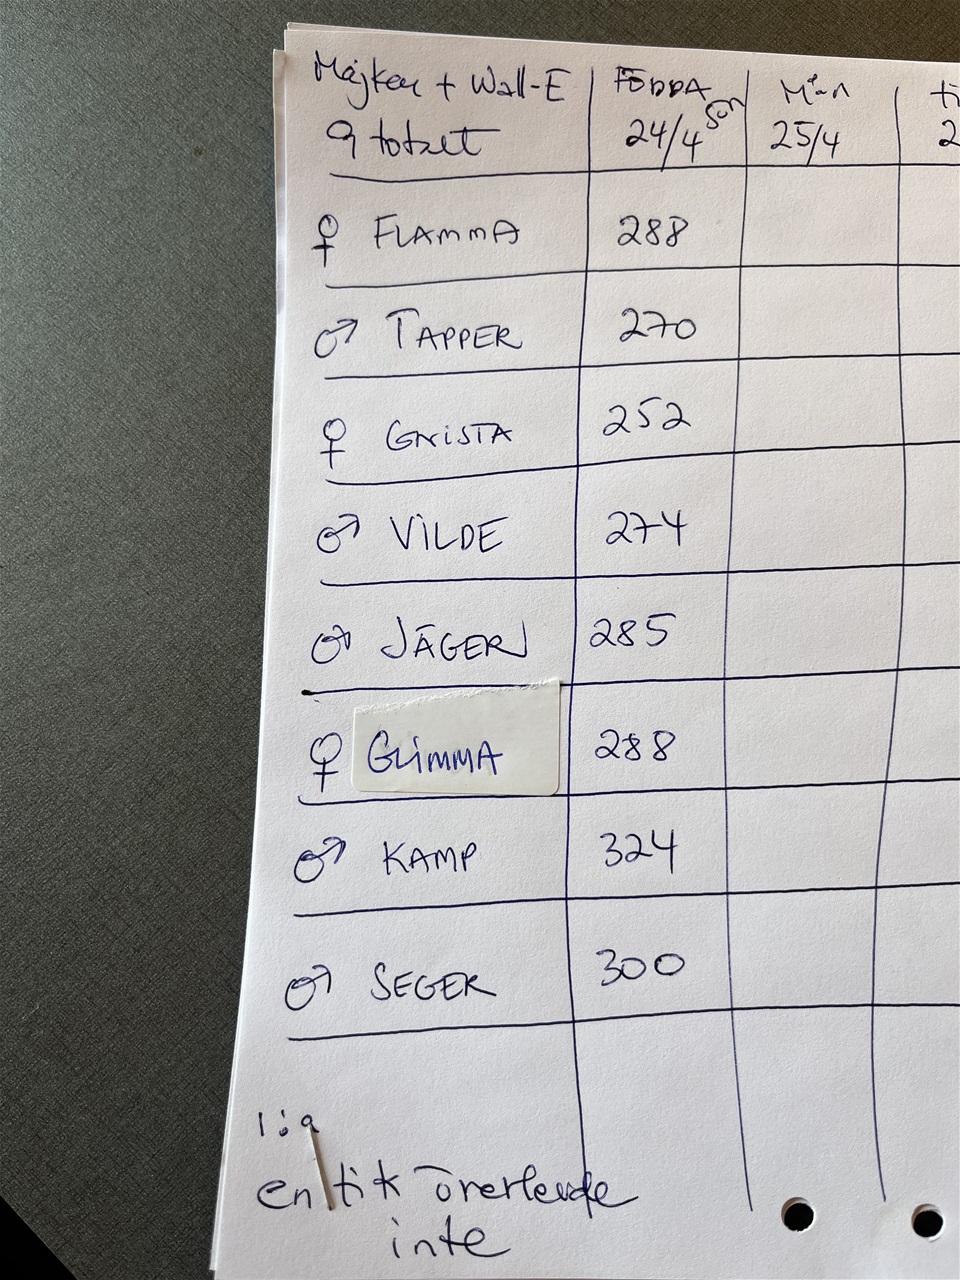 Majken + Wall-E FÖDDA Mån ti
9 totalt 24/4 Sön 25/4 2
♀ FLAMMA 288
♂ TAPPER 270
♀ GNISTA 252
♂ VILDE 274
♂ JÄGER 285
♀ GLIMMA 288
♂ KAMP 324
♂ SEGER 300
1:a
en tik överlevde
inte